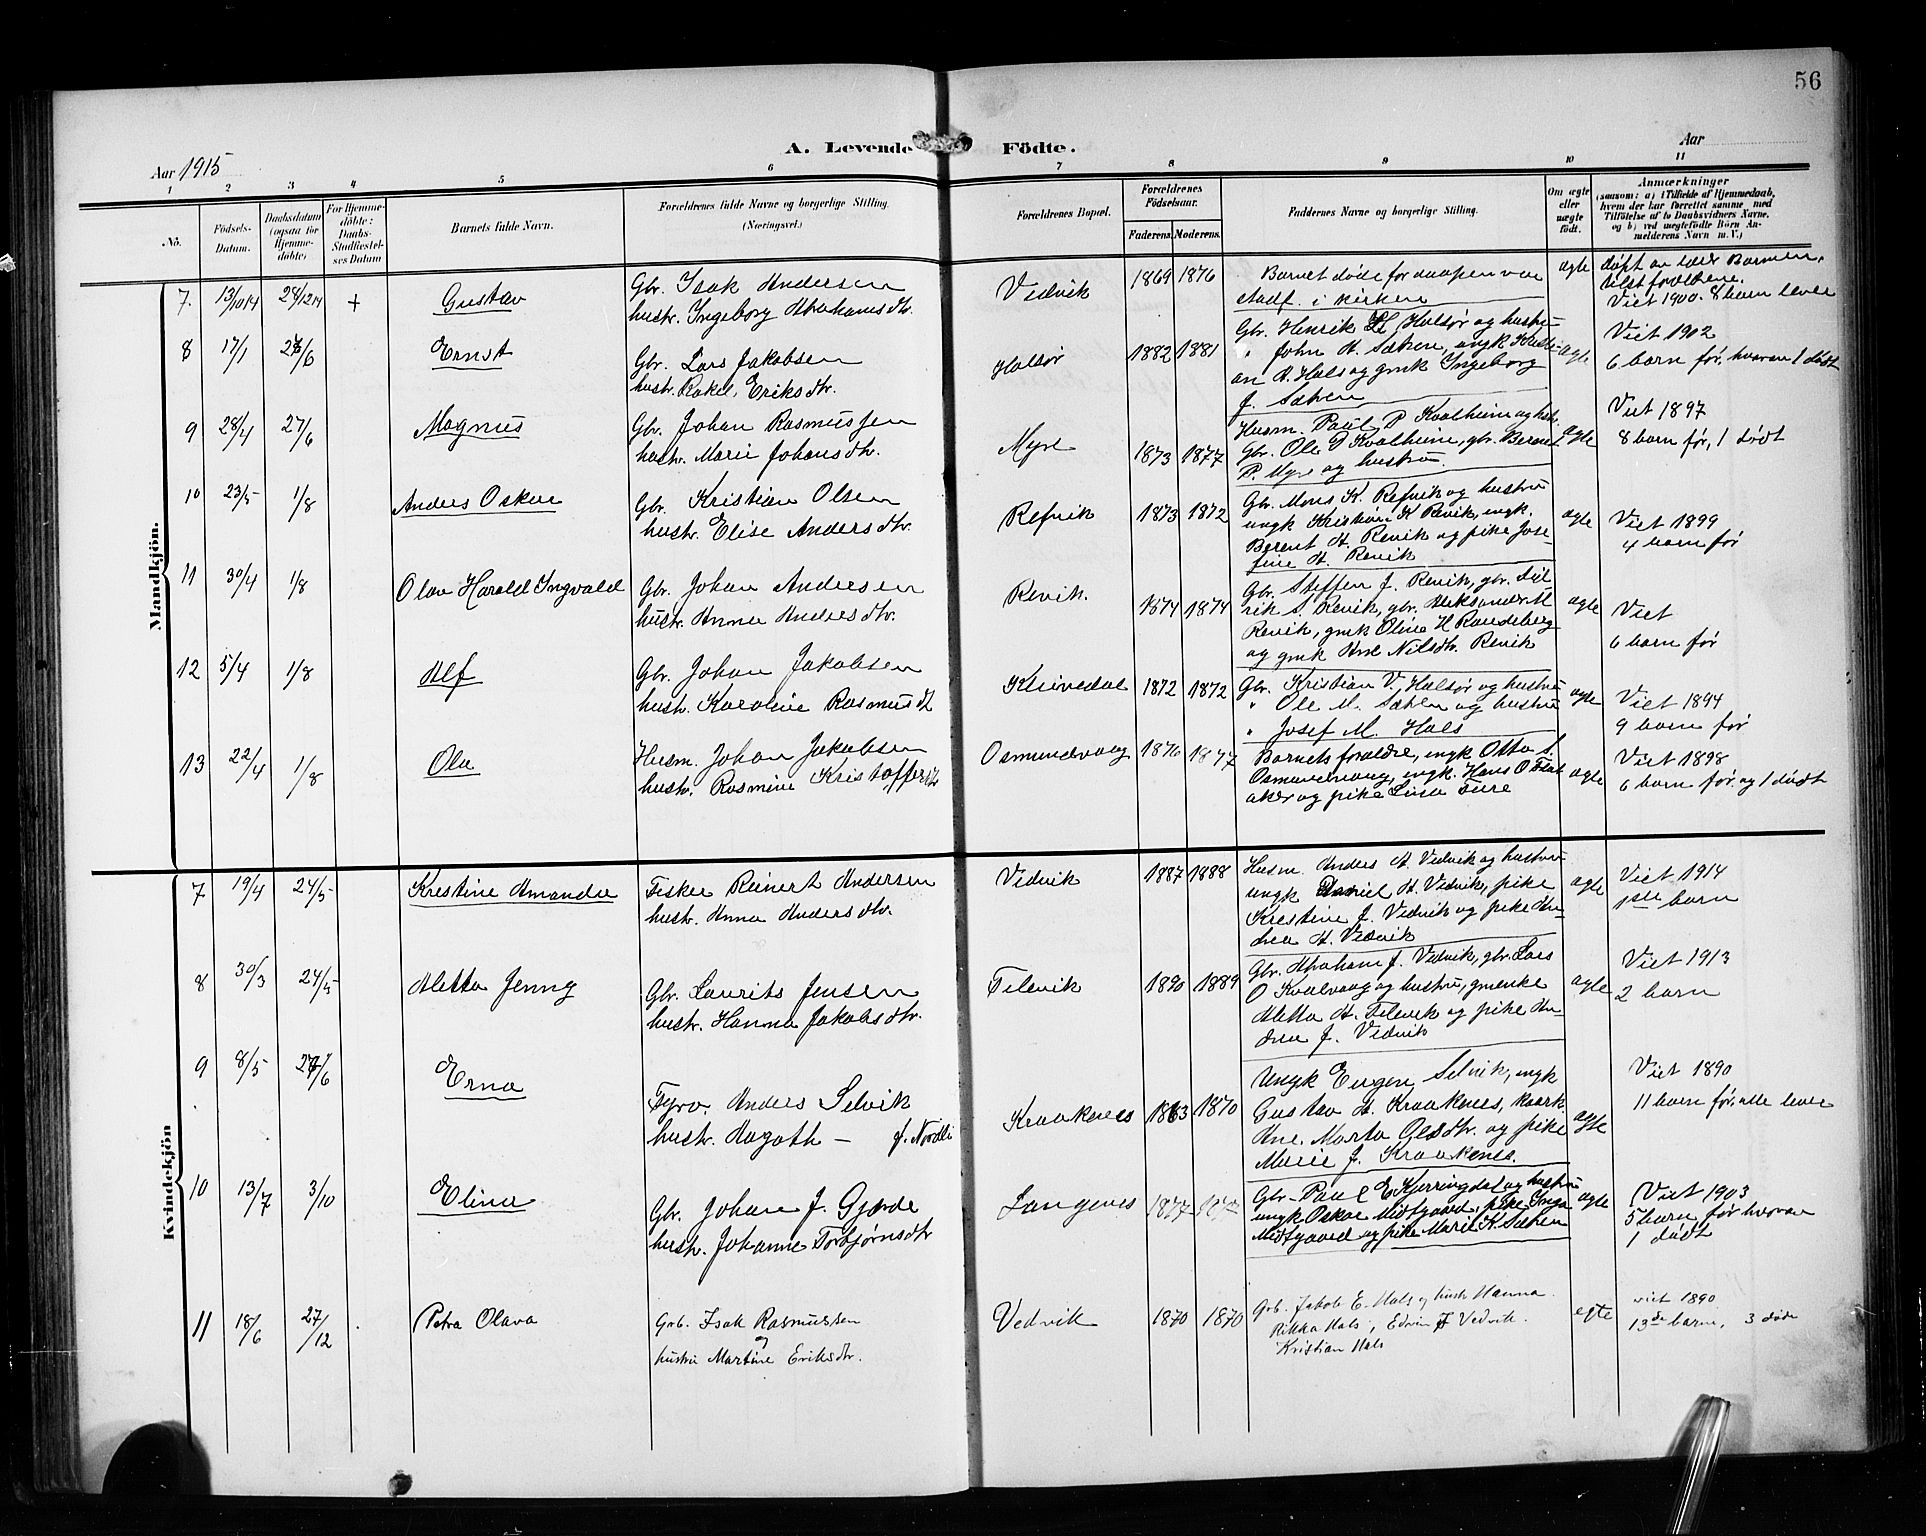 56
A. Levende Födte.
Aar 1915
Aar
1 2 3 4 5 6 7 8 9 10 11
No.
Födsels-Datum.
Daabsdatum (ogsaa for Hjemmedöbte)
For Hjemmedöbte: Daabs-Stadfæstelses Datum
Barnets fulde Navn.
Forældrenes fulde Navne og borgerlige Stilling. (Næringsvei.)
Forældrenes Bopæl.
Forældrenes Födselsaar.
Faderens. Moderens.
Faddernes Navne og borgerlige Stilling.
Om ægte eller uægte födt.
Anmærkninger
(saasom: a) i Tilfælde af Hjemmedaab, hvem der har forrettet samme, med Tilföielse af to Daabsvidners Navne, og b) ved uægtefödte Börn Anmelderens Navn m. V.)
Mandkjön.
7. 13/10 14 28/12 14 + Gustav
Gbr. Isak Andersen
hustr. Ingeborg Abrahamsdtr.
Vedvik 1869 1876
Barnet døde før daapen var
stadf. i kirken
ægte
døpt av
forældrene.
Viet 1900. 8 barn lever
8 17/1 /6 Ernst
Gbr. Lars Jakobsen
hustr. Rakel Eriksdtr.
Halsør 1882 1881
Gbr. Henrik Halsør og hustru
" John A. Sætren, ungk Kristi-
an A. Hals og gmk Ingeborg
J. Sætren
ægte
Viet 1902
6 barn før, hvorav 1 dødt
9 28/4 27/6 Magnus
Gbr. Johan Rasmussen
hustr. Marie Johansdtr.
Myre 1873 1877
Husm. Paul P Kvalheim og hstr.
Gbr. Ole P Kvalheim, gbr. Berent
P. Myre og hustru
ægte
Viet 1897
8 barn før, 1 dødt
10 23/5 1/8 Anders Oskar
Gbr. Kristian Olsen
hustr. Elise Andersdtr.
Refvik 1873 1872
Gbr. Mons K. Refvik og hustru
ungk Kristian K Revik, ungk.
Berent A. Revik og pike Jose-
fine A. Revik
ægte
Viet 1899
4 barn før
11 30/4 1/8 Olav Harald Ingvald
Gbr. Johan Andersen
hustr. Anna Andersdtr.
Revik. 1874 1874
Gbr. Steffen J. Revik, gbr. Did-
rik S. Revik, gbr. Aleksander M
Revik, gmk Oline H Randeberg
og gmk Ane Nilsdtr. Revik
ægte
Viet
6 barn før
12 5/4 1/8 Alf
Gbr. Johan Jakobsen
hustr. Karoline Rasmusdt
Kleivedal 1872 1872
Gbr. Kristian V. Halsør og hustru
" Ole M. Sætren og hustru
" Josef M. Hals
ægte
Viet 1894
9 barn før
13 22/4 1/8 Ola
Husm. Johan Jakobsen
hustr. Rasmine Kristoffersdtr
Osmundvaag 1876 1877
Barnets forældre, ungk Otto S.
Osmundvaag, ungk. Hans O Flat-
aker og pike Lina Ture
ægte
Viet 1898
6 barn før. og 1 dødt
Kvindekjön
7 19/4 24/5 Kristine Amanda
Fisker Reinert Andersen
hustr. Anna Andersdtr.
Vedvik 1887 1888
Husm. Anders A. Vedvik og hustru
ungk Daniel A. Vedvik, pike
Kristine J. Vedvik og pike An-
drea A. Vedvik
ægte
Viet 1914
1ste barn
8 30/3 24/5 Aletta Jenny
Gbr. Laurits Jensen
hustr. Hanna Jakobsdtr.
Filevik 1890 1889
Gbr. Abraham J. Vedvik, gbr. Lars
O Kvalvaag og hustru, gmenke
Aletta A. Filevik og pike An-
drea J. Vedvik
ægte
Viet 1913
2 barn
9 8/5 27/6 Erna
Fyrv. Anders Selvik
hustr. Hagoth - f. Nordli
Kraaknes 1863 1870
Ungk Eugen Selvik, ungk
Gustav A. Kraaknes, kaark.
Ane Marta Olsdtr. og pike
Marie J. Kraakenes.
ægte
Viet 1890
11 barn før, alle lever
10 13/7 3/10 Elina
Gbr. Johan J. Gjærde
hustr. Johanne Torbjørnsdtr
Langenes 1877
Gbr- Paul E Kjerringdal og hustru
ungk Oskar Midtgaard, pike Inga
Midtgaard og pike Marie K. Sætren
ægte
Viet 1903
5 barn før hvorav
1 dødt
11 18/6 27/12 Petra Olava
Grb. Isak Rasmussen
og
hustru Martine Eriksdtr.
Vedvik 1870 1870
Grb. Jakob E. Hals og hustr Hanna
Rikka Hals, Edvin J Vedvik.
Kristian Hals
egte
viet 1890
13de barn, 3 døde